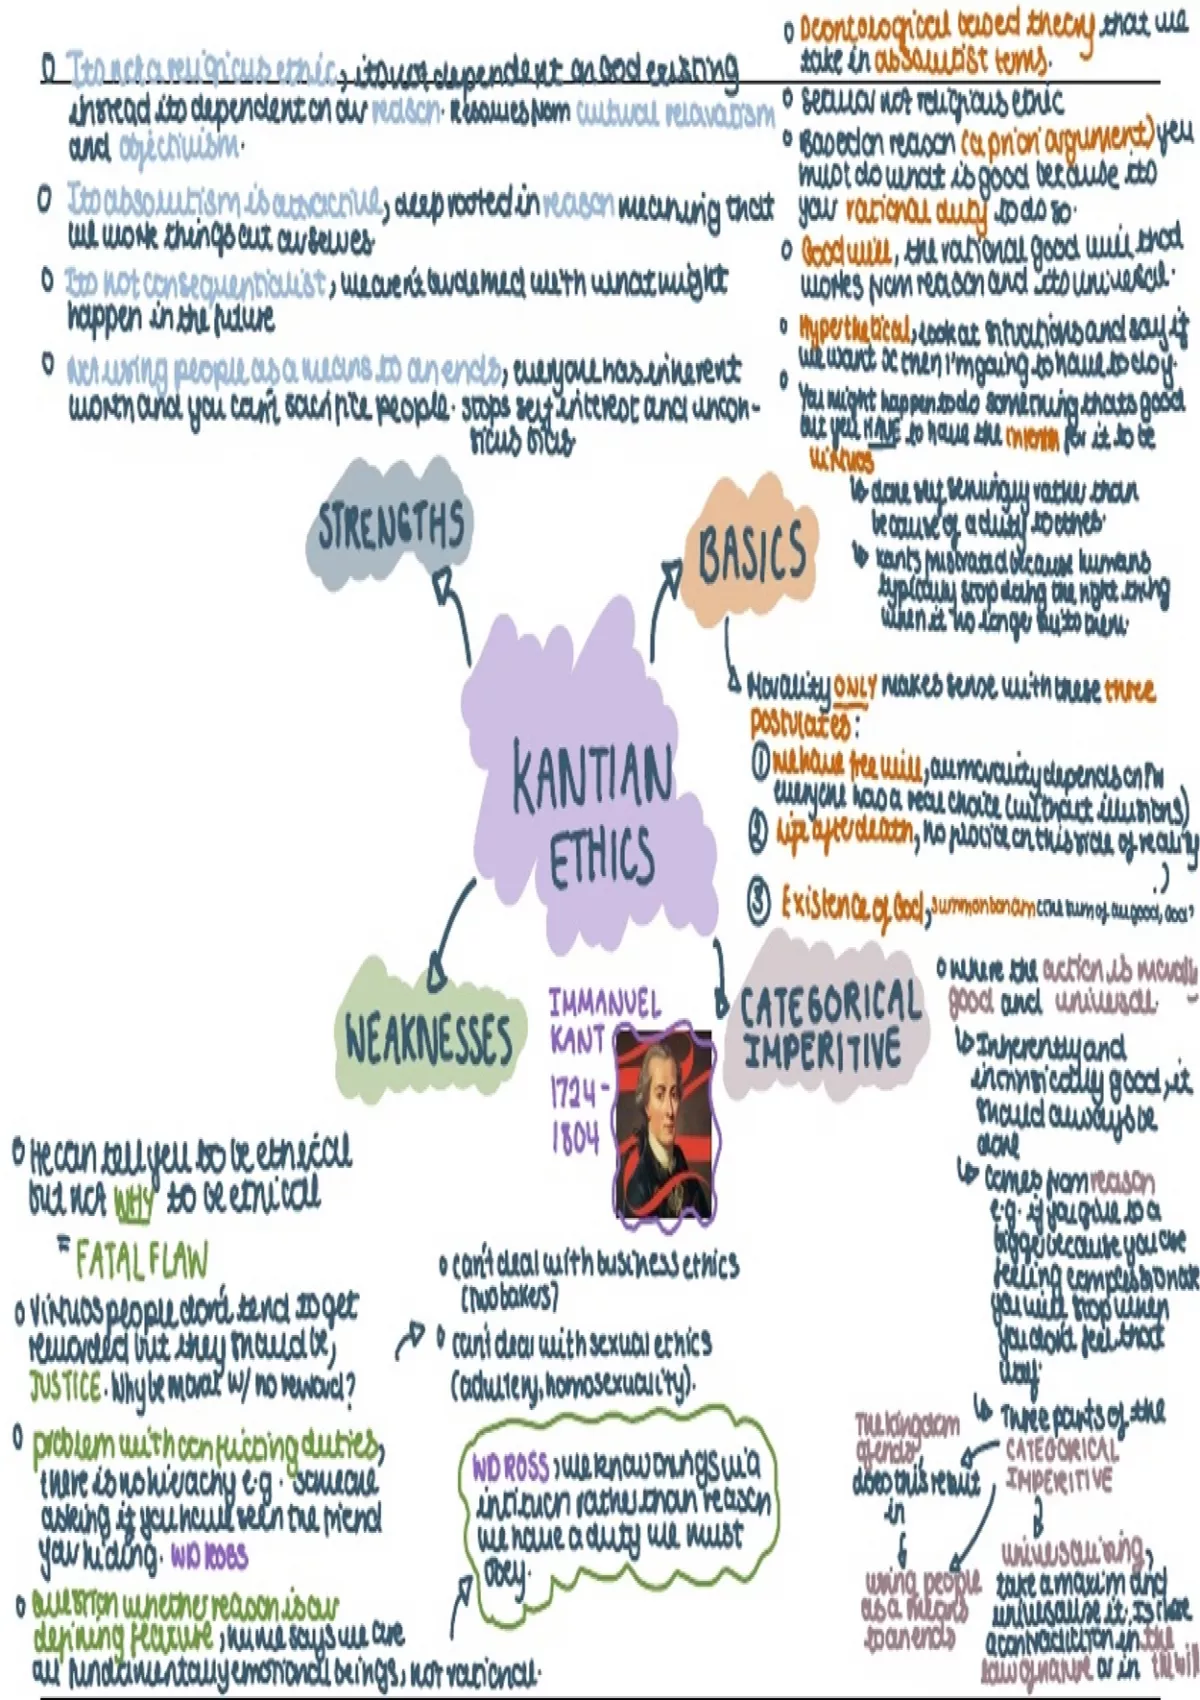 o Its not a religious ethic, its not dependent on God existing
instead its dependent on our reason. Resolves from cultural relavatism
and objectivism.
o Its absolutism is attractive, deep rooted in reason meaning that
we work things out ourselves
o Its not consequentialist, we aren't burdened with what might
happen in the future
o Not using people as a means to an ends, everyone has inherent
worth and you can't sacrifice people. stops self interest and uncon-
scious bias
o Deontological based theory that we
take in absolutist terms.
o Secular not religious ethic
o Based on reason (a priori argument) you
must do what is good because its
your rational duty to do so.
o Good will, the rational good will that
works from reason and its universal.
o Hypothetical, look at situations and say if
we want x then I'm going to have to do y.
o You might happen to do something thats good
but you HAVE to have the for it to be
virtuos
↳ done self servingly rather than
because of a duty to others.
↳ Kants frustrated because humans
typically stop doing the right thing
when it no longer suits them.
STRENGTHS
BASICS
Morality ONLY makes sense with these three
postulates:
① We have free will, all morality depends on FW
everyone has a real choice (without illusions)
② Life after death, no on this side of reality
③ Existence of God, summon bonam (the sum of all good, God?
KANTIAN
ETHICS
WEAKNESSES
IMMANUEL
KANT
1724-
1804
CATEGORICAL
IMPERITIVE
o where the action is morally
good and universal.
↳ Inherently and
intrinsically good, it
should always be
done
↳ Comes from reason
e.g. if you give to a
because you are
feeling compassionate
you will stop when
you don't feel that
way.
↳ Three parts of the
CATEGORICAL
IMPERITIVE
The kingdom
of ends
does this result
in
using people
as a means
to an ends
universalising,
take a maxim and
universalise it. Is there
a contradiction in the
law of nature or in the will
o He can tell you to be ethical
but not WHY to be ethical
= FATAL FLAW
o Virtuos people don't tend to get
rewarded but they should be,
JUSTICE. Why be moral w/ no reward?
o problem with conflicting duties,
there is no hierachy e.g. someone
asking if you have seen the friend
your hiding. WD ROSS
o Question whether reason is our
defining feature, hume says we are
all fundamentally emotional beings, not rational.
o can't deal with business ethics
(two bakers?
o can't deal with sexual ethics
(adultery, homosexuality).
WD ROSS, we know things via
intituion rather than reason
we have a duty we must
obey.